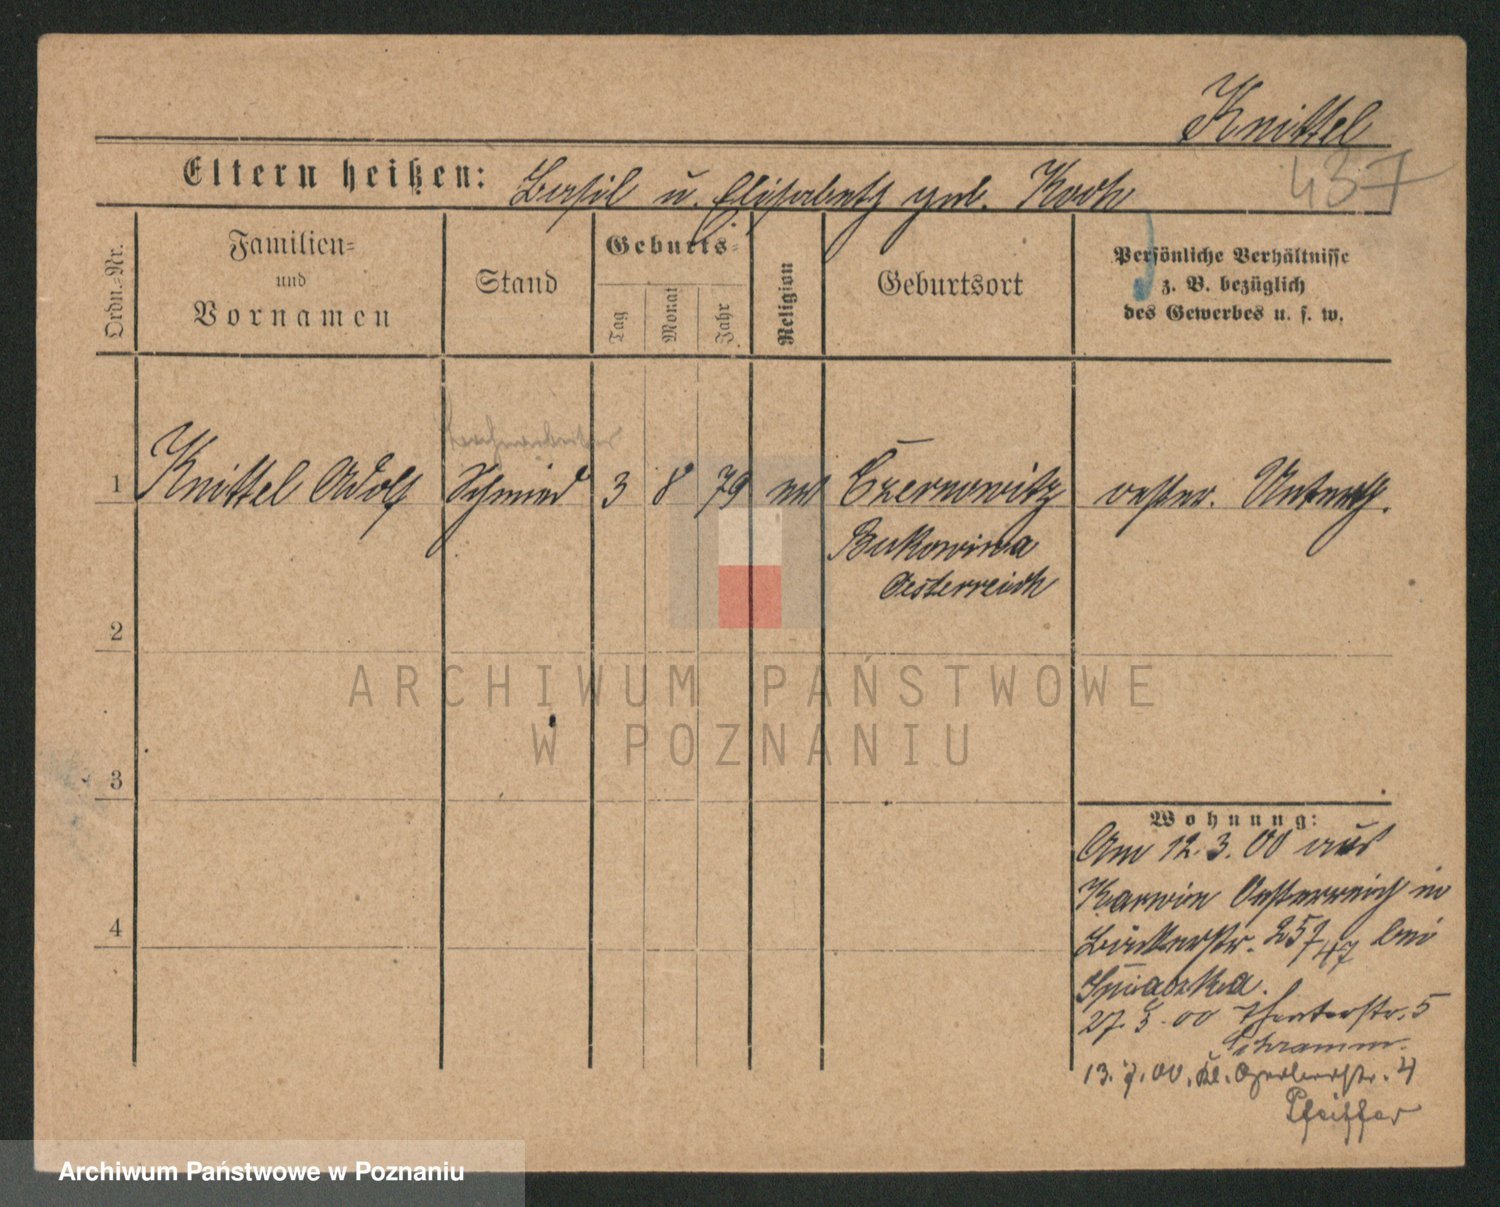 Knittel
437
Eltern heißen: Basil u. Elisabeth geb. Koch
Ordn.=Nr.
Familien=
und
Vornamen
Stand
Geburts=
Tag
Monat
Jahr
Religion
Geburtsort
Persönliche Verhältnisse
z. B. bezüglich
des Gewerbes u. s. w.
1 Knittel Adolf Schmied 3 8 79 Czernowitz oester. Unterth.
Bukowina
Oesterreich
2
3
4
Wohnung:
Am 12. 3. 00 aus
Karwin Oesterreich in
Bäckerstr. 25 bei
27. 5. 00 Theaterstr. 5
Schramm.
13. 7. 00. Kl. Gerberstr. 4
Pfeiffer
ARCHIWUM PAŃSTWOWE
W POZNANIU
Archiwum Państwowe w Poznaniu